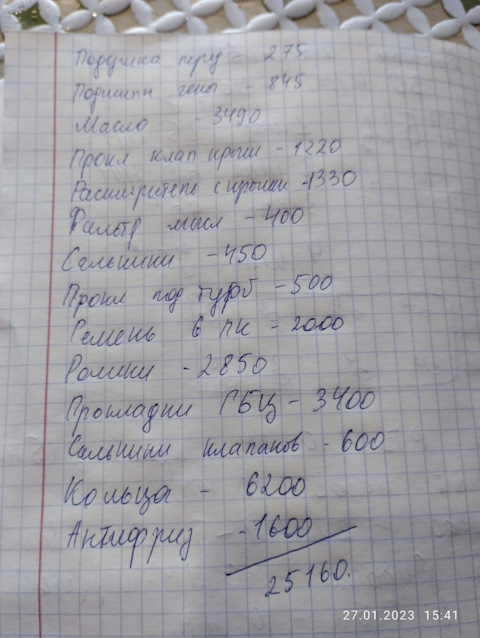 Подушка перед - 275
Подшипн гены - 845
Масло - 3490
Прокл клап крыш - 1220
Расширитель с крышки - 1330
Фильтр масл - 400
Сальники - 450
Прокл под турб - 500
Ремень 6 пк - 2000
Ролики - 2850
Прокладки ГБЦ - 3400
Сальники клапанов - 600
Кольца - 6200
Антифриз - 1600
25160.
27.01.2023 15:41